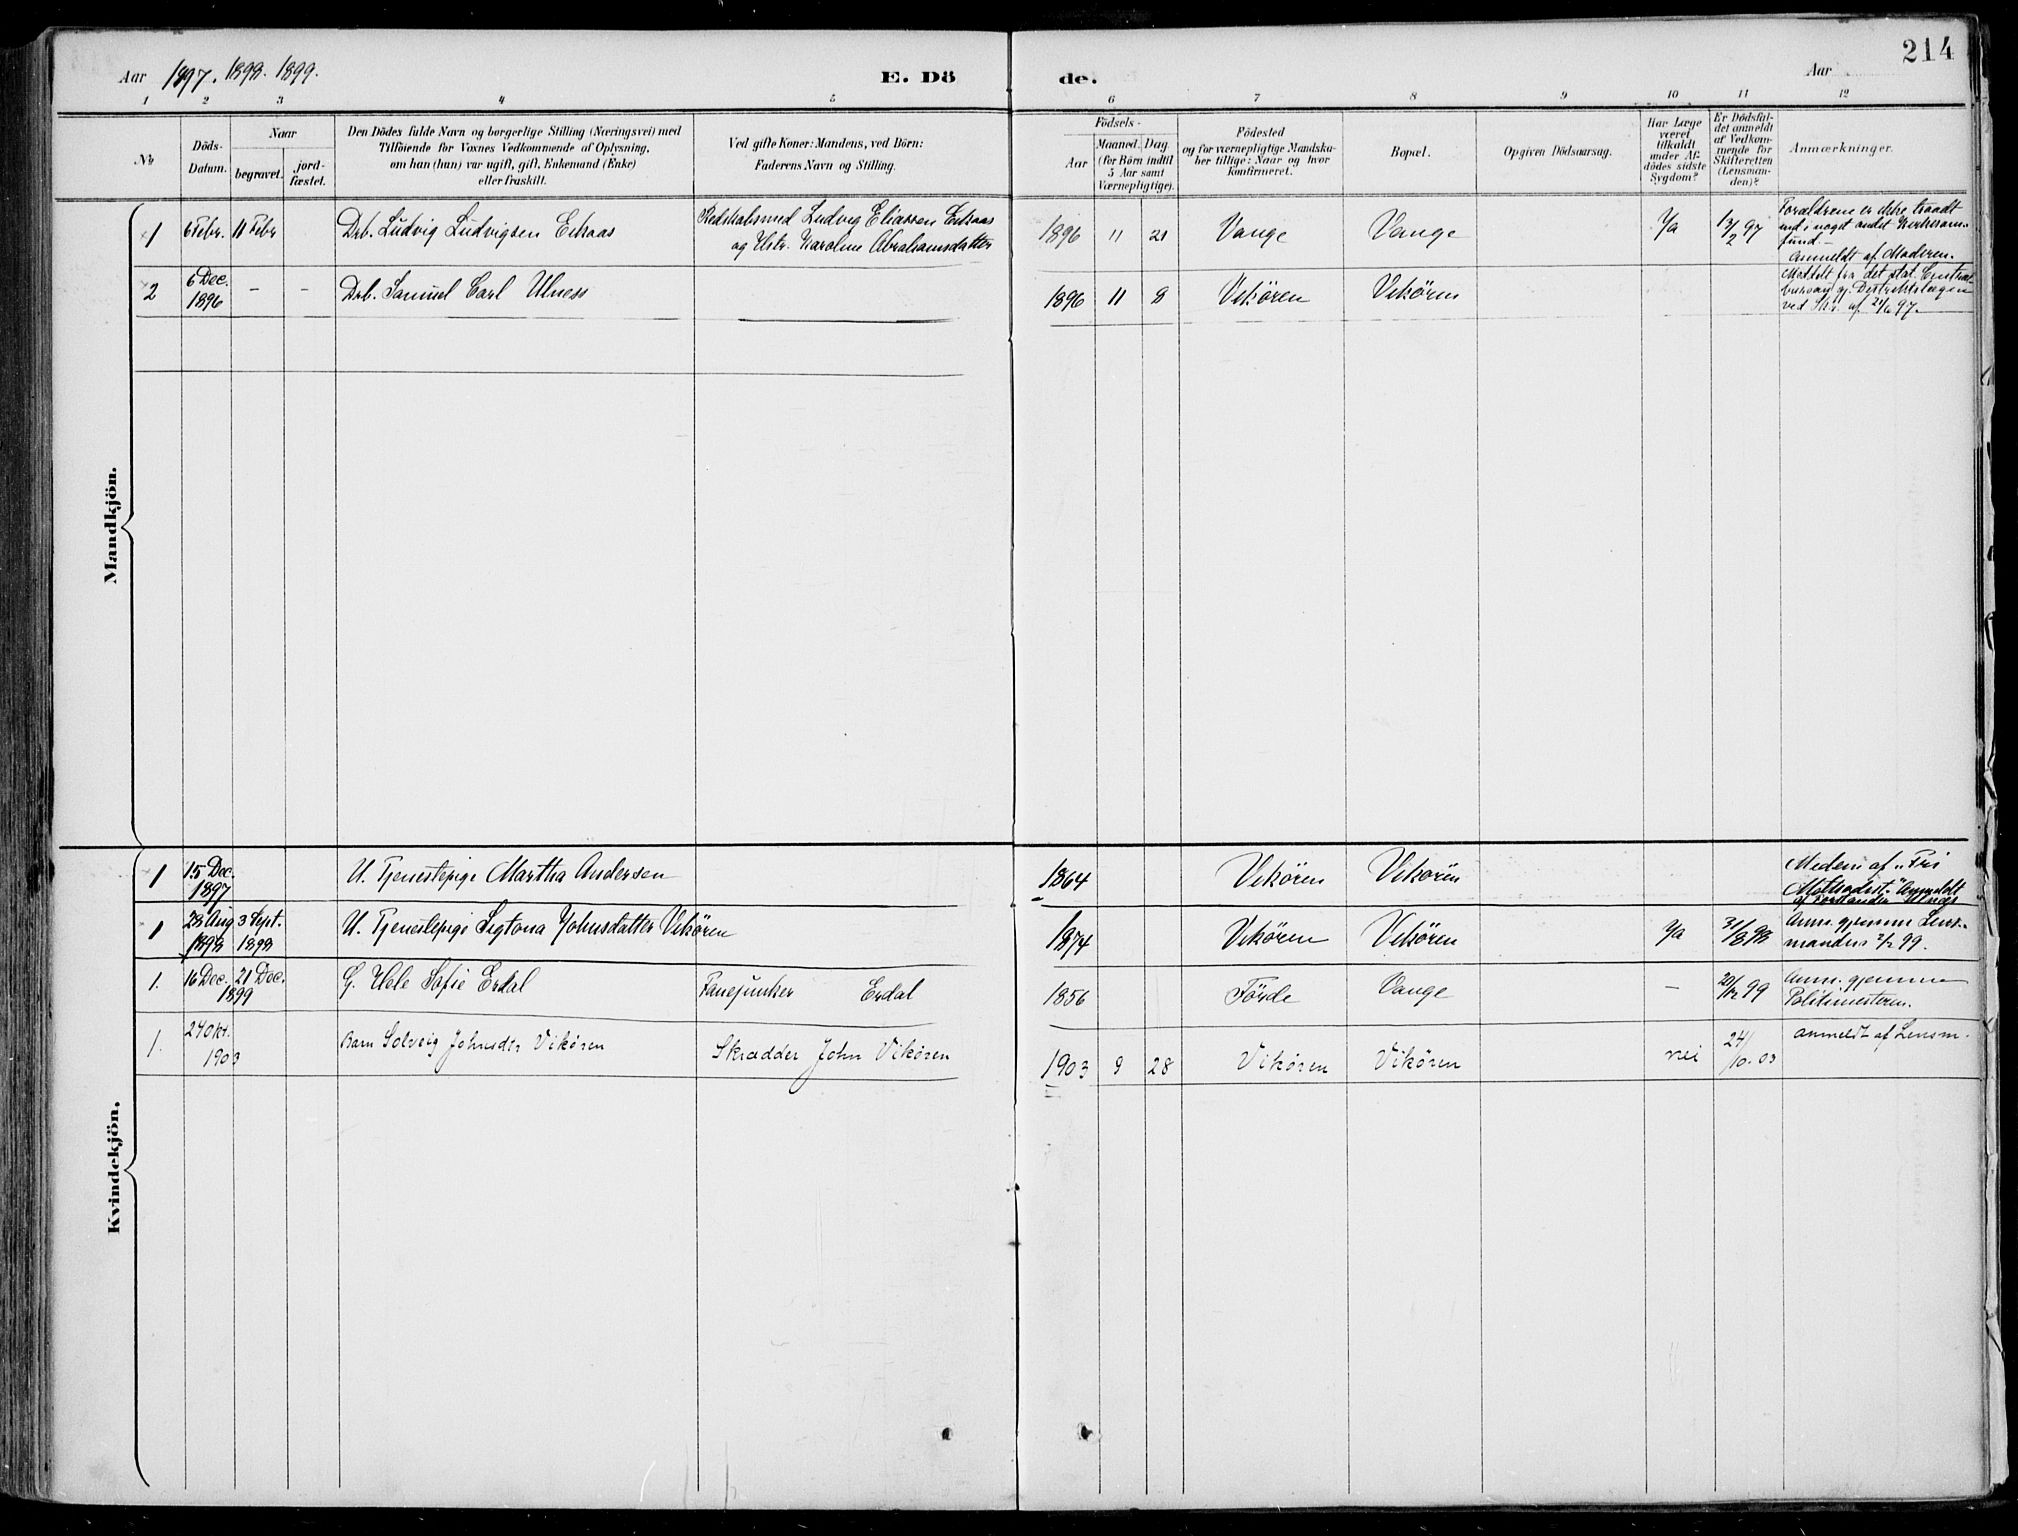 214
Aar 1897. 1898. 1899.
E. Dö
de.
Aar
1 2 3 4 5 6 7 8 9 10 11 12
No
Döds-
Datum.
Naar
begravet.
jord-
fæstet.
Den Dödes fulde Navn og borgerlige Stilling (Næringsvei) med
Tilföiende for Voxnes Vedkommende af Oplysning,
om han (hun) var ugift, gift, Enkemand (Enke)
eller fraskilt.
Ved gifte Koner: Mandens, ved Börn:
Faderens Navn og Stilling.
Födsels-
Aar
Maaned. Dag.
(for Börn indtil
5 Aar samt
Værnepligtige).
Födested
og for værnepligtige Mandska-
ber tillige: Naar og hvor
Konfirmeret.
Bopæl.
Opgiven Dödsaarsag.
Har Læge
været
tilkaldt
under Af-
dödes sidste
Sygdom?
Er Dödsfal-
det anmeldt
af Vedkom-
mende for
Skifteretten
(Lensman-
den)?
Anmærkninger.
Mandkjön.
1 6 Febr. 11 Febr Drb. Ludvig Ludvigsen Eikaas
Ludvig Eliassen Eikaas
og Hstr. Karoline Abrahamsdatter
1896 11 21 Vange Vange Ja 13/2 97
Forældrene er ikke traadt
ind i noget andet Kirkesam-
fund.-
Anmeldt af Moderen.
2 6 Dec.
1896 - - Drb. Samuel Carl Ulness
1896 11 8 Vikören Vikören
Meddelt fra det stat. Central
bureau gj. Distriktslægen
ved Skr. af 21/6 97.
Kvindekjön.
1 15 Dec.
1897 U. Tjenestepige Martha Andersen
1864 Vikören Vikören
Medem af "Fri
Methodist." Anmeldt
af Forstander Ulness
1 28 Aug 3 Sept.
1898 1898 U. Tjenestepige Sigtona Johnsdatter Vikören
1874 Vikören Vikören Ja 31/8 98
Anm. gjennem Lens-
manden 2/2 99.
1. 16 Dec. 21 Dec.
1899 G. Hele Sofie Erdal Fanejunker Erdal
1856 Förde Vange - 20/12 99
Anm. gjennem
Politimesteren.
1. 24 Okt.
1903 Barn Solveig Johnsdtr Vikören Skrædder John Vikören
1903 9 28 Vikören Vikören nei 24/10. 03
anmeldt af Lensm.